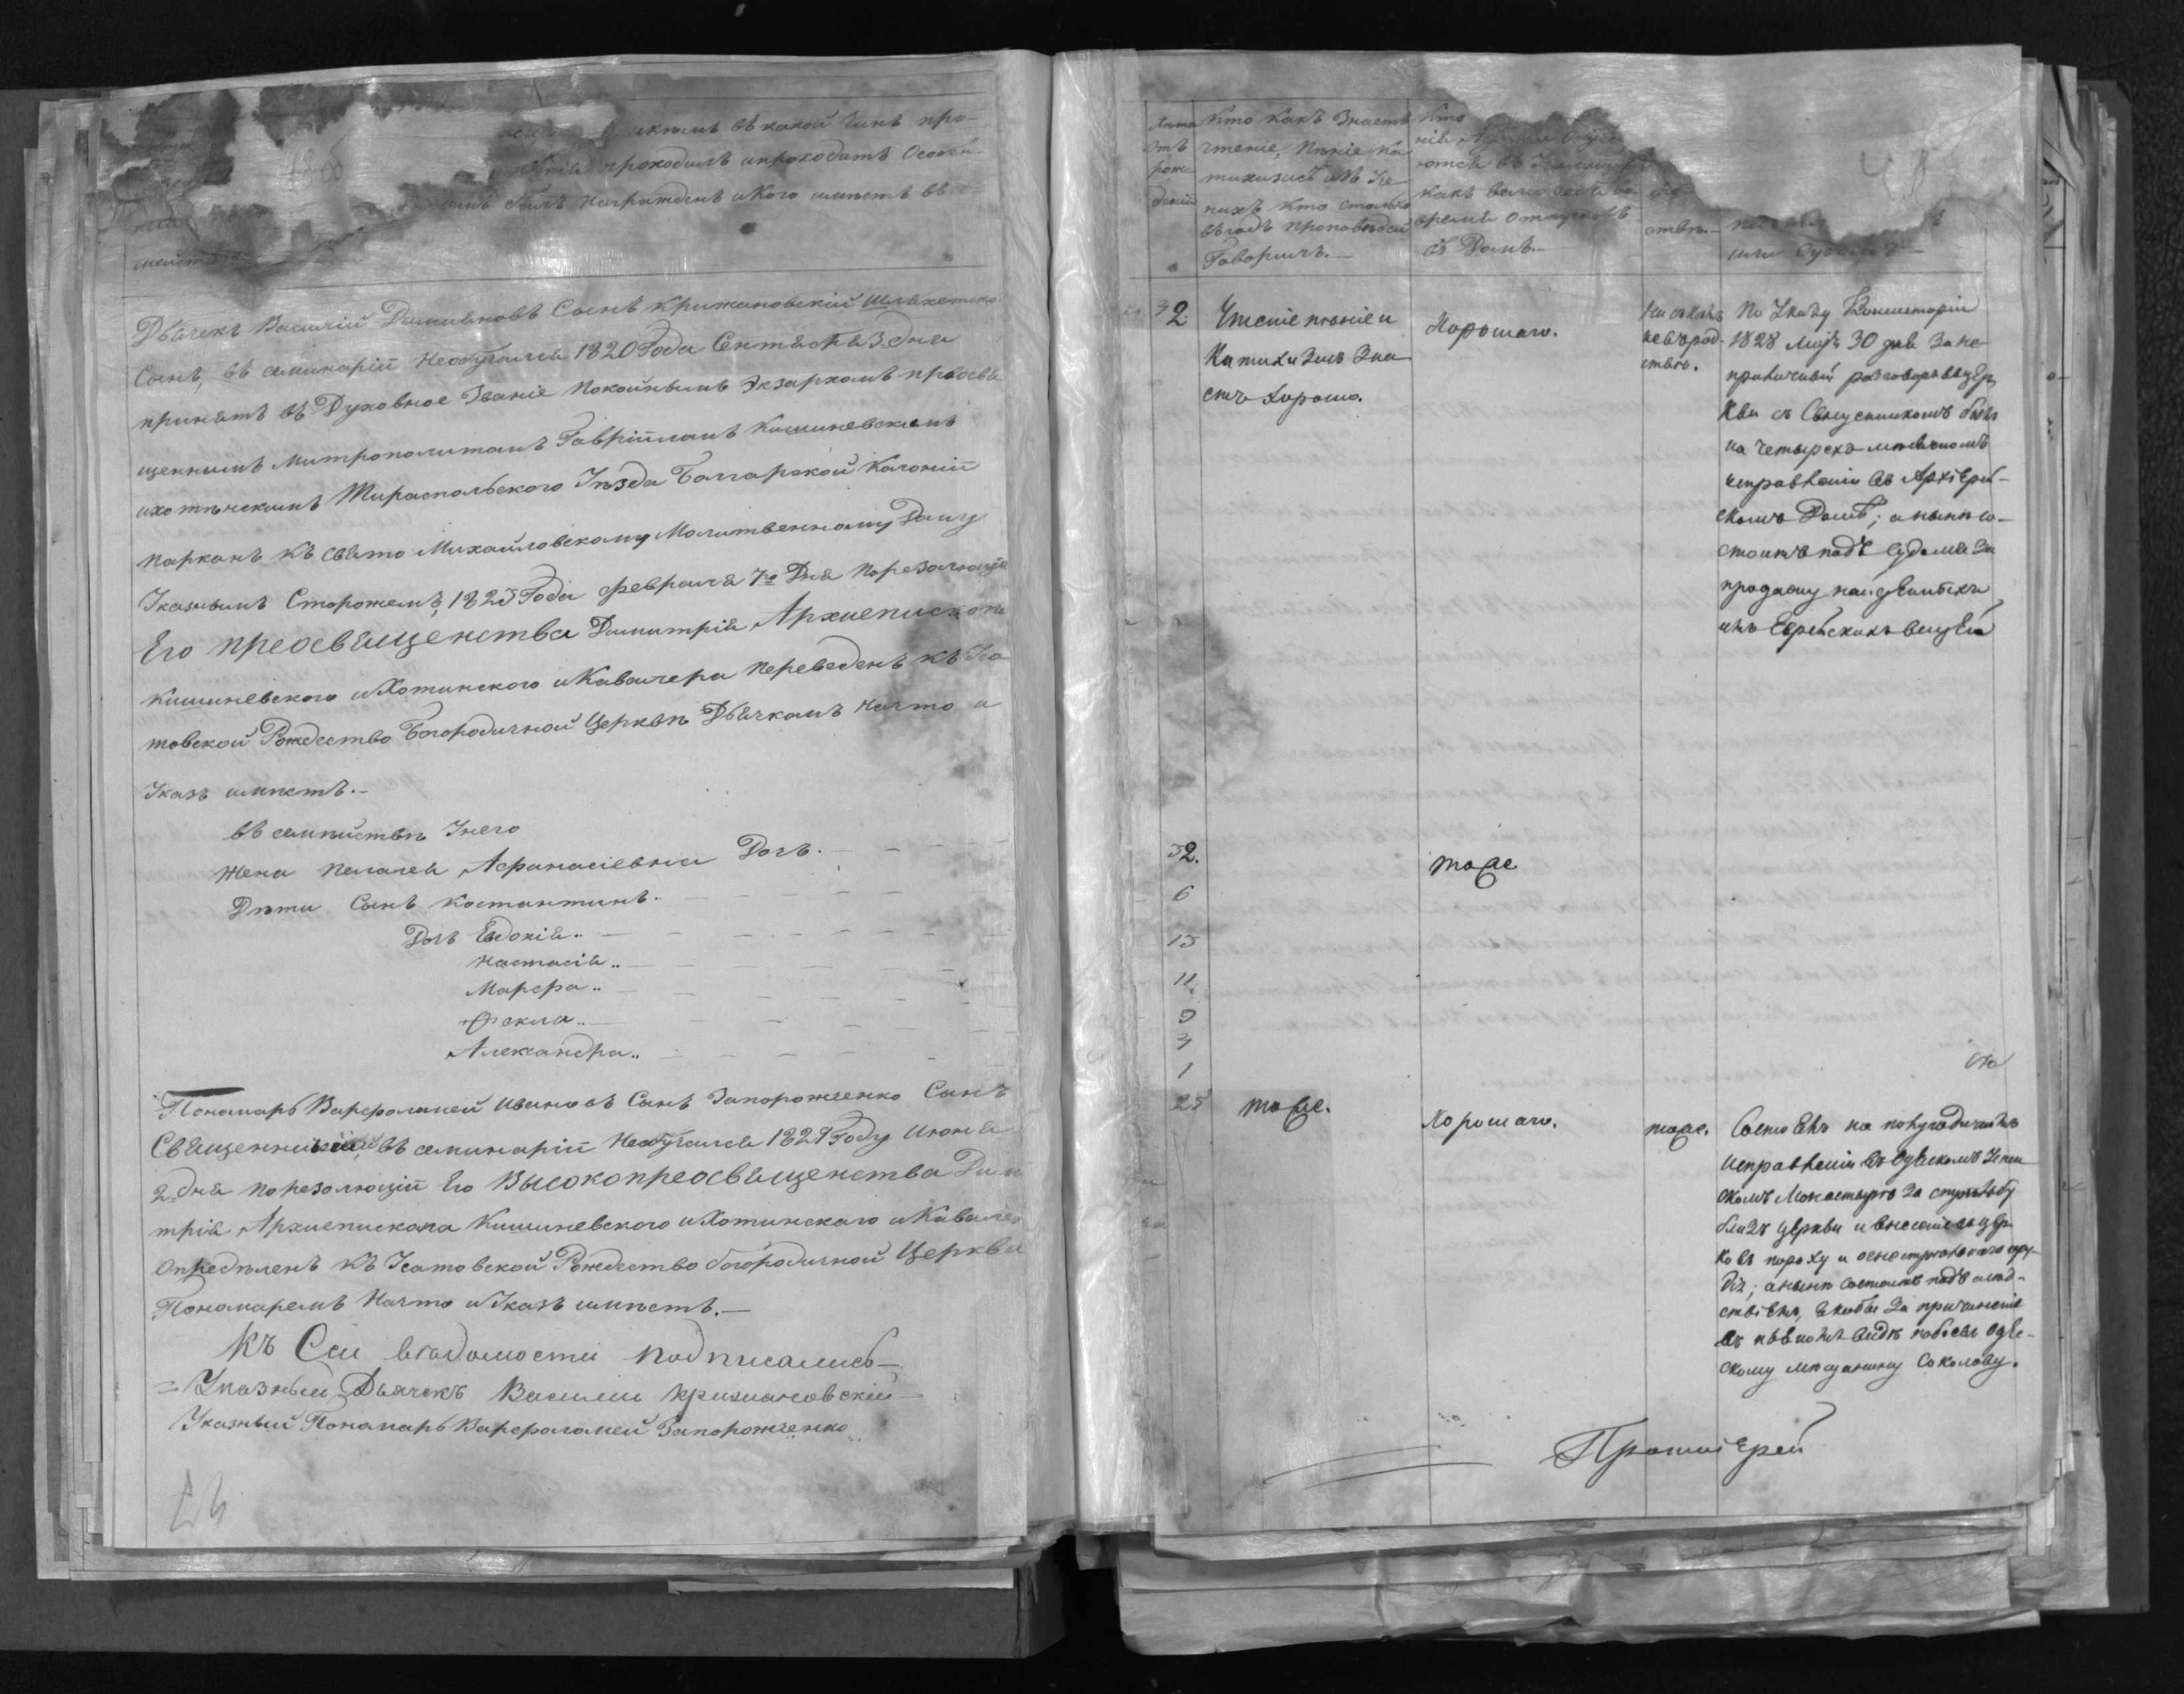 въ какой Чинъ про-
проходилъ ипроходитъ Особен-
былъ награжденъ иКого имѣетъ въ се-
мействѣ
Дьячекъ Василій Даміановъ Сынъ Крижановскій Шляхетско
Сынъ, въ семинаріи Необучался 1820 Года Сентября 3. дня
принятъ въ Духовное Званіе Покойнымъ Экзархомъ преосвя
щеннымъ Митрополитомъ Гавріиломъ Кишиневскимъ
ихотѣнскимъ Тираспольского Уѣзда Болгарской Колоніи
Парканъ Къ Свято Михайловскому Молитвенному Дому
Указнымъ Сторожемъ, 1823 Года февраля 7го Дня порезолюціи
Его преосвященства Димитрія Архиепископа
Кишиневского иХотинского иКавалера переведенъ Къ Уса
товской Рождество Богородичной Церквѣ Дьячкомъ Начто и
Указъ имѣетъ.-
въ семѣйствѣ Унего
Жена Пелагея Афанасіевна Дочъ.
Дѣти Сынъ Костантинъ.
Дочъ Евдокія..
Настасія..
Марфа..
Фекла..
Александра..
Пономарь Варфоламей Ивановъ Сынъ Запорожченко Сынъ
Священническій въ семинаріи Необучался 1829 Году Июня
2. дня порезолюціи Его Высокопреосвященства Дими
трія Архиепископа Кишиневского иХотинскаго иКавалер
Опредѣленъ Къ Усатовской Рождество богородичной Церкви
Пономаремъ Начто иУказъ имѣетъ.—
Къ Сеи вѣдомости подписались—
=Указныи Дьячекъ Василии Крижановскій—
Указный Пономарь Варфоломей Запорожченко
Лѣта
отъ
рож-
денія
Кто Какъ Знаетъ
чтеніе, Пѣніе Ка
тихизисъ изъ Уче
ныхъ Кто столько
въгодъ проповѣдей
Говоритъ.—
Кто
какъ
времѧ отпущенъ
въ Домъ.—
ствѣ.—
или Судомъ—
32
Чтеніе пѣніе и
Катихизисъ Зна
етъ Хорошо.
Хорошаго.
Ни съ кѣмъ
невъ род-
ствѣ.
По Указу Консисторіи
1828 Маія 30 дня за не
приличный разговоръ въ цер
кви съ Священникомъ былъ
на четырехъ мѣсячномъ
исправленіи въ Архіерей-
скомъ Домѣ; а нынѣ со-
стоитъ подъ судомъ за
продажу найденныхъ
имъ Еврейскихъ вещей
32.
тоже
6
15
11.
9
3
1
25
тоже.
Хорошаго.
тоже.
Состоялъ на полугодичномъ
исправленіи въ Одескомъ Успен
скомъ Монастырѣ за стрѣльбу
близъ церкви и внесеніе въ цер
ковь пороху и огнестрѣльнаго ору-
дія; а нынѣ состоитъ подъ слѣд-
ствіемъ, якобы за причиненіе
въ пьяномъ видѣ побоевъ Оде-
скому мѣщанину Соколову.
Протоіерей